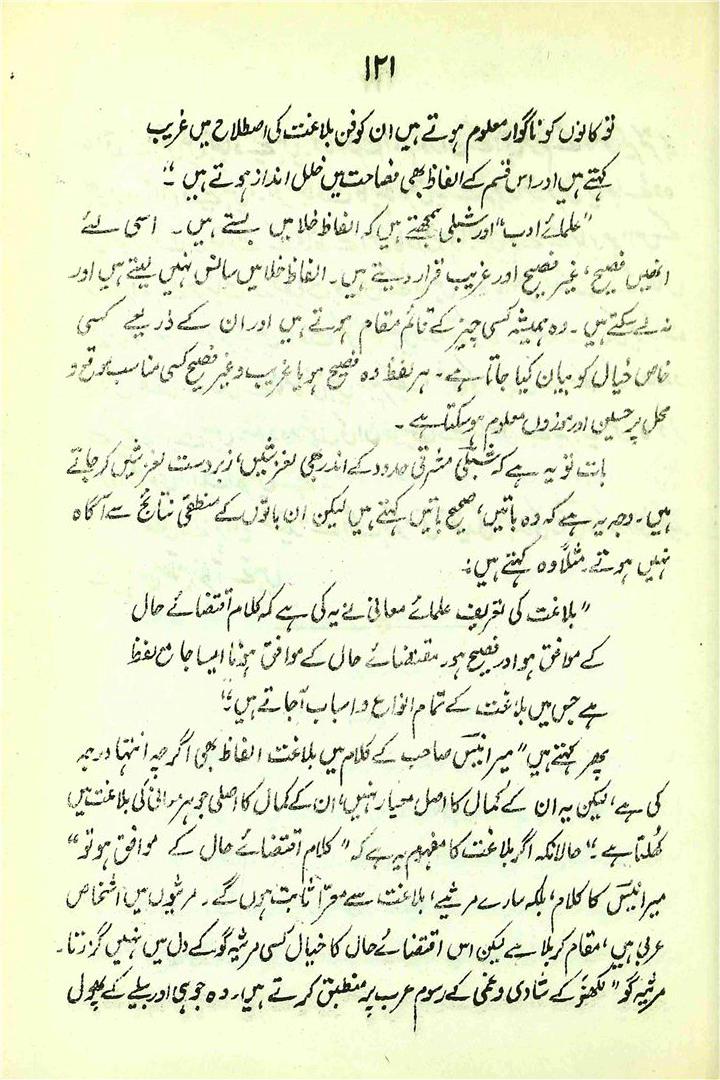 ۱۲۱
تو کانوں کو ناگوار معلوم ہوتے ہیں ان کو فن بلاغت کی اصطلاح میں غریب
کہتے ہیں اور اس قسم کے الفاظ بھی فصاحت میں خلل انداز ہوتے ہیں ۔"
"علمائے ادب" اور شبلی سمجھتے ہیں کہ الفاظ خلا میں بستے ہیں۔ اسی لئے
انھیں فصیح، غیر فصیح اور غریب قرار دیتے ہیں۔ الفاظ خلا میں سانس نہیں لیتے ہیں اور
نہ لے سکتے ہیں ۔ وہ ہمیشہ کسی چیز کے قائم مقام ہوتے ہیں اور ان کے ذریعے کسی
خاص خیال کو بیان کیا جاتا ہے۔ ہر لفظ وہ فصیح ہو یا غریب و غیر فصیح کسی مناسب موقع و
محل پر حسین اور موزوں معلوم ہو سکتا ہے ۔
بات تو یہ ہے کہ شبلی مشرقی حدود کے اندر بھی لغزشیں، زبردست لغزشیں کر جاتے
ہیں۔ وجہ یہ ہے کہ وہ باتیں، صحیح باتیں کہتے ہیں لیکن ان باتوں کے منطقی نتائج سے آگاہ
نہیں ہوتے۔ مثلاً وہ کہتے ہیں:
"بلاغت کی تعریف علمائے معانی نے یہ کی ہے کہ کلام اقتضائے حال
کے موافق ہو اور فصیح ہو۔ مقتضائے حال کے موافق ہونا ایسا جامع لفظ
ہے جس میں بلاغت کے تمام انواع و اسباب آ جاتے ہیں۔"
پھر کہتے ہیں "میر انیس صاحب کے کلام میں بلاغت الفاظ بھی اگرچہ انتہا درجہ
کی ہے، لیکن یہ ان کے کمال کا اصل معیار نہیں، ان کے کمال کا اصلی جوہر معانی کی بلاغت میں
کھلتا ہے۔" حالانکہ اگر بلاغت کا مفہوم یہ ہے کہ "کلام اقتضائے حال کے موافق ہو تو"
میر انیس کا کلام، بلکہ سارے مرثیے، بلاغت سے معرّا ثابت ہوں گے۔ مرثیوں میں اشخاص
عربی ہیں، مقام کربلا ہے لیکن اس اقتضائے حال کا خیال کسی مرثیہ گو کے دل میں نہیں گزرتا۔
مرثیہ گو "لکھنؤ کے شادی و غمی کے رسوم عرب پر منطبق کرتے ہیں۔ وہ جوہی اور بیلے کے پھول